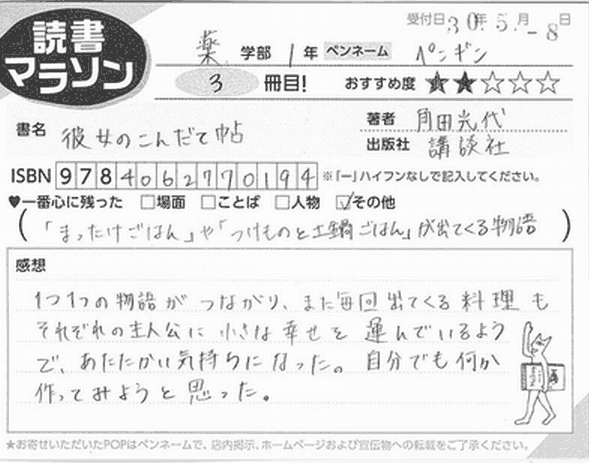 読書
マラソン
受付日 30年 5月 -8日
薬 学部 1年 ペンネーム ペンギン
3 冊目! おすすめ度 ★★☆☆☆
書名 彼女のこんだて帖
著者 角田光代
出版社 講談社
ISBN 9784062770194 ※「-」ハイフンなしで記入してください。
♥一番心に残った □場面 □ことば □人物 ☑その他
(「まったけごはん」や「つけものと土鍋ごはん」が出てくる物語)
感想
1つ1つの物語がつながり、また毎回出てくる料理も
それぞれの主人公に小さな幸せを運んでいるよう
で、あたたかい気持ちになった。自分でも何か
作ってみようと思った。
★お寄せいただいたPOPはペンネームで、店内掲示、ホームページおよび宣伝物への転載をご了承ください。